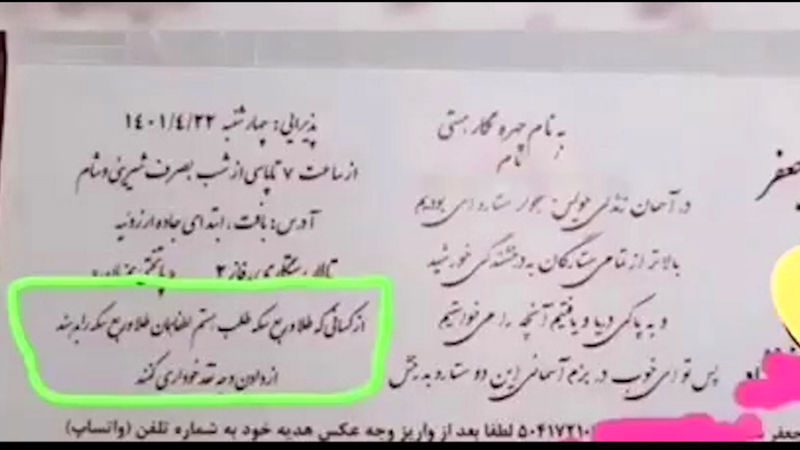 به نام چهره نگار هستی
نام
در آسمان زندگی خویش بجوار ستاره ای بودیم
بالاتر از تمامی ستارگان به درخشندگی خورشید
و به پاکی دریا و یافتیم آنچه را می خواستیم
پس تو ای خوب در بزم آسمانی این دو ستاره بدرخش
پذیرایی: چهارشنبه ۱۴۰۱/۴/۲۲
از ساعت ۷ تا پاسی از شب بصرف شیرینی و شام
آدرس: بافت، ابتدای جاده ارزوئیه
تالار رستگاری فاز ۲
از کسانی که طلا و ربع سکه طلب هستم لطفا همان طلا و ربع سکه را بدهند
از دادن وجه نقد خودداری کنند
جعفر
جعفر
۵۰۴۱۷۲۱۰ لطفا بعد از واریز وجه عکس هدیه خود به شماره تلفن (واتساپ)